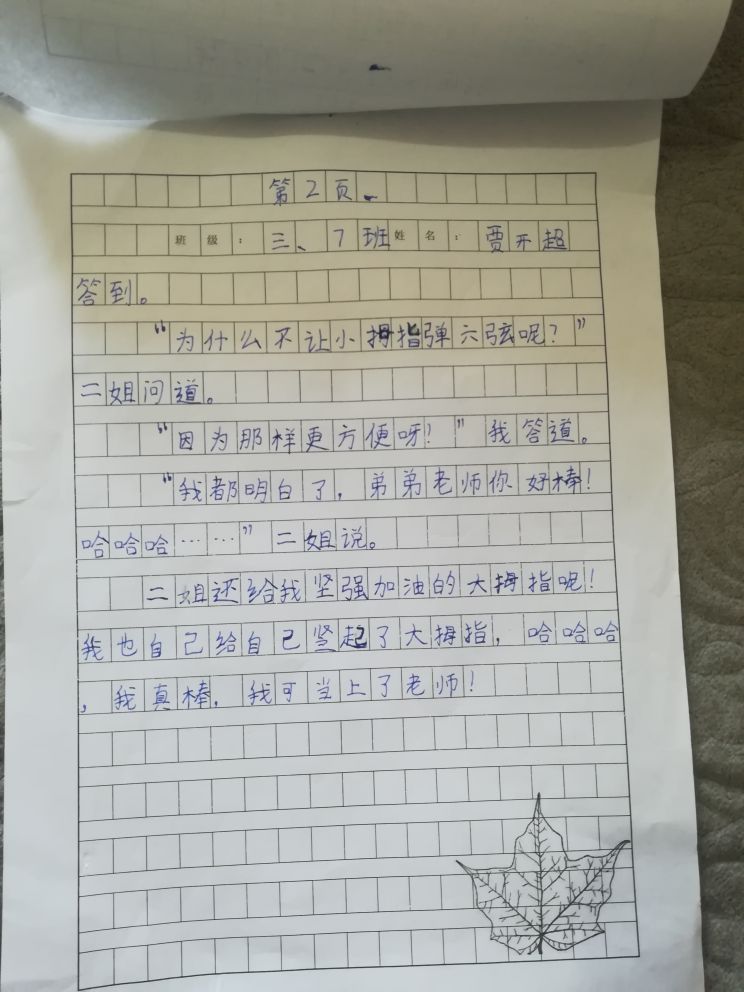 第2页
班级：三、7班姓名：贾开超
答到。
“为什么不让小拇指弹六弦呢？”
二姐问道。
“因为那样更方便呀！”我答道。
“我都明白了，弟弟老师你好棒！
哈哈哈……”二姐说。
二姐还给我坚强加油的大拇指呢！
我也自己给自己竖起了大拇指，哈哈哈
，我真棒，我可当上了老师！